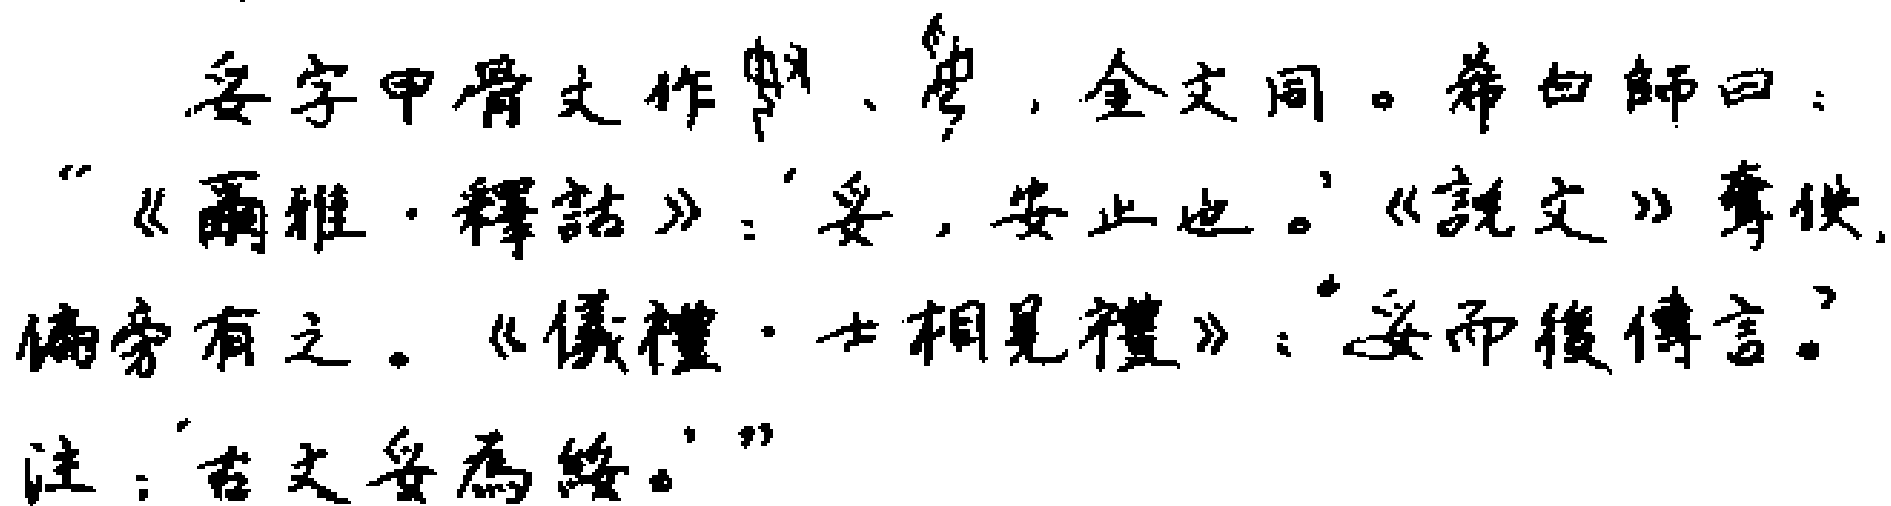 妥字甲骨文作、，金文同。希白師曰：
“《爾雅·釋詁》：‘妥，安止也。’《説文》奪佚，
偏旁有之。《儀禮·士相見禮》：‘妥而後傳言。’
注：‘古文妥爲綏。’”